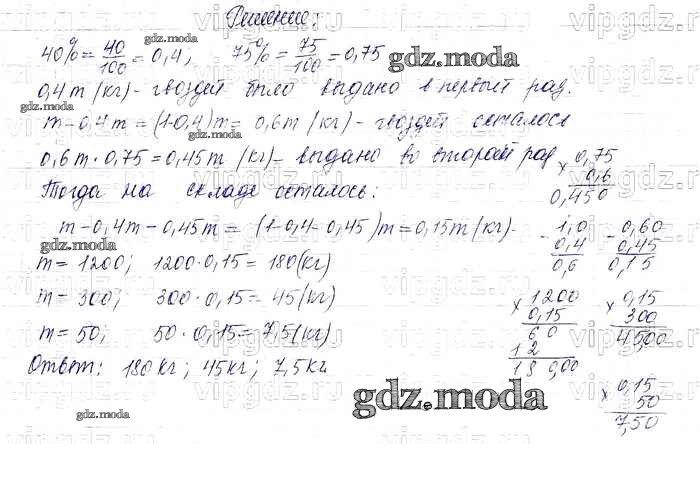 Решение:
40% = 40/100 = 0,4; 75% = 75/100 = 0,75
0,4m (кг) - гвоздей было выдано в первый раз.
m - 0,4m = (1-0,4)m = 0,6m (кг) - гвоздей осталось
0,6m · 0,75 = 0,45m (кг) - выдано во второй раз
× 0,75
0,6
0,450
Тогда на складе осталось:
m - 0,4m - 0,45m = (1-0,4-0,45)m = 0,15m (кг) -
- 1,0
0,4
0,6
- 0,60
0,45
0,15
m = 1200; 1200 · 0,15 = 180 (кг)
m = 300; 300 · 0,15 = 45 (кг)
m = 50; 50 · 0,15 = 7,5 (кг)
× 1200
0,15
60
12
18 0,00
× 0,15
300
45,00
Ответ: 180 кг; 45 кг; 7,5 кг
× 0,15
50
7,50
gdz.moda
gdz.moda
gdz.moda
gdz.moda
gdz.moda
gdz.moda
gdz.moda
vipgdz.ru